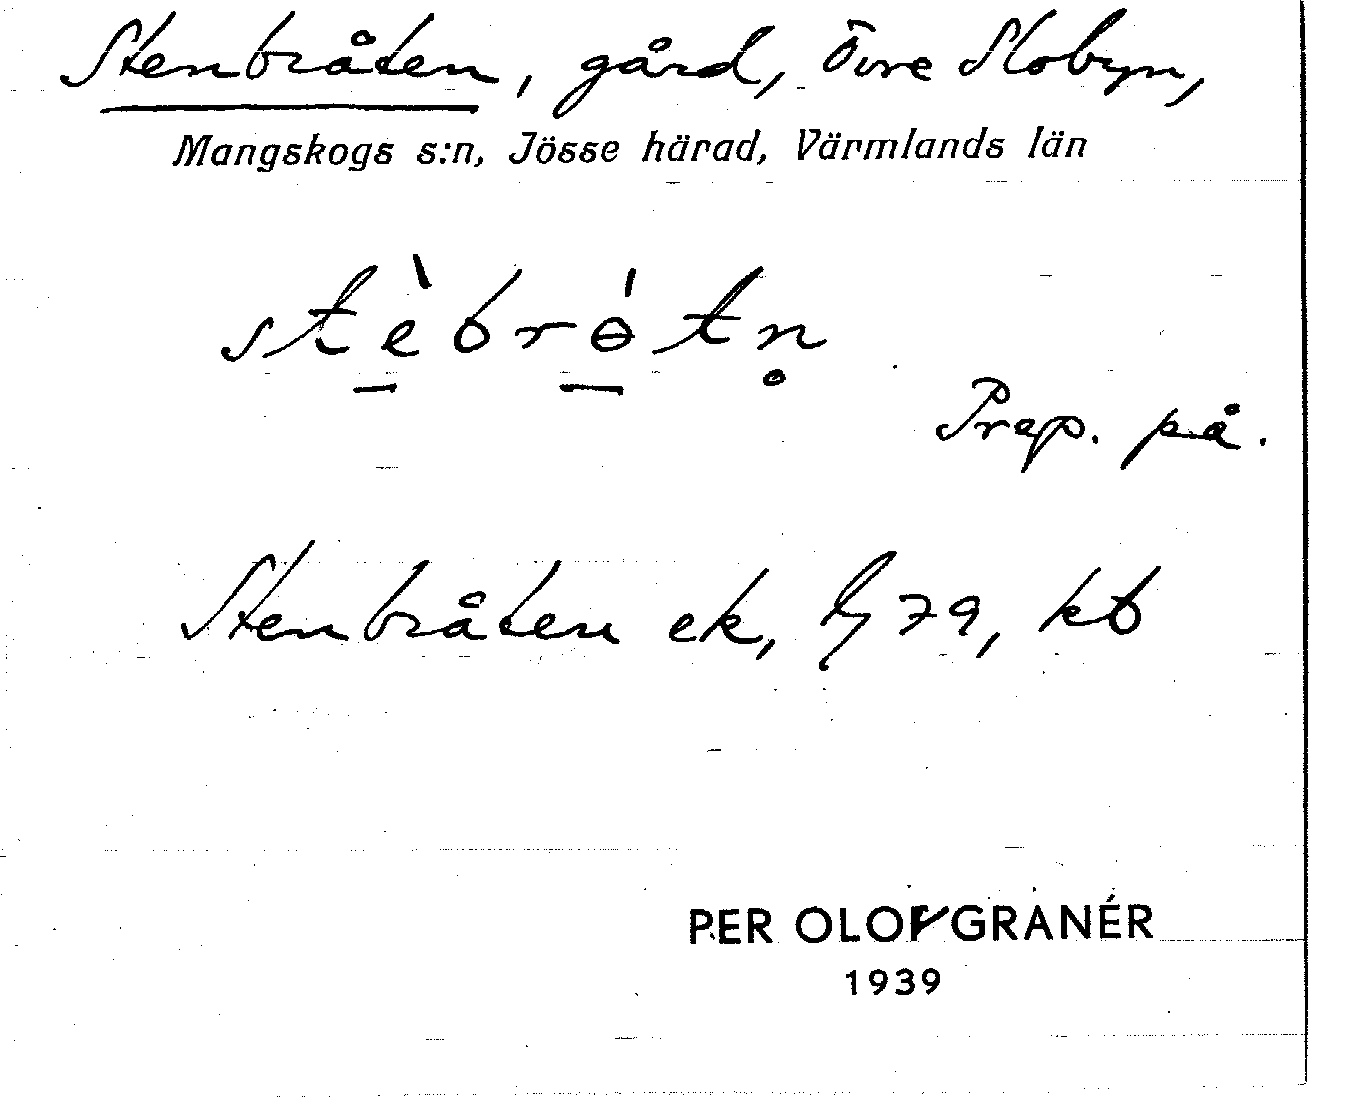 Stenbråten, gård, Övre Slobyn,
Mangskogs s:n, Jösse härad, Värmlands län
stèbrɵ́tn̥
Prep. på.
Stenbråten ek, hy 79, kb
PER OLOF GRANÉR
1939